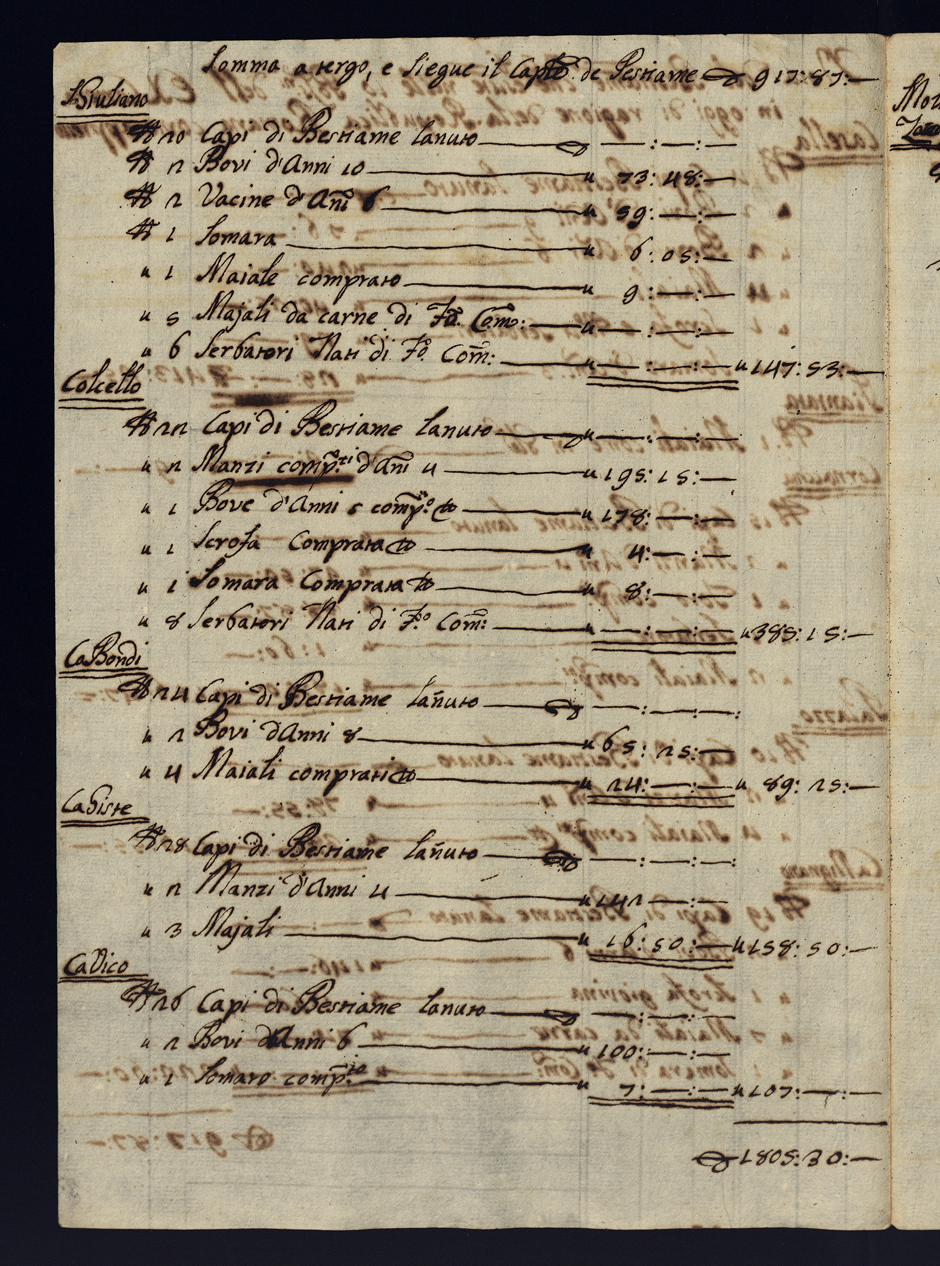 Somma a tergo, e siegue il Capto. de Bestiame 917:87:—
S. Giuliano
N 20 Capi di Bestiame lanuto — :—:—
N 2 Bovi d'Anni 10 " 73:48:—
N 2 Vacine d'Ani 6 " 59:—:—
N 1 Somara " 6:05:—
" 1 Maiale comprato " 9:—:—
" 5 Majali da carne di Fd. Com: " —:—:—
" 6 Serbatori Nati di Fd. Com: " —:—:— " 147:53:—
Colcello
N 22 Capi di Bestiame lanuto " —:—:—
" 2 Manzi comp.ti d'Ani 4 " 195:15:—
" 1 Bove d'Anni 5 comp.to " 178:—:—
" 1 Scrofa Comprata " 4:—:—
" 1 Somara Comprata " 8:—:—
" 8 Serbatori Nati di Fd. Com: " —:—:— " 385:15:—
CaBondi
N 24 Capi di Bestiame lanuto —:—:—
" 2 Bovi d'Anni 8 " 65:25:—
" 4 Maiali comprati " 24:—:— " 89:25:—
CaSiste
N 28 Capi di Bestiame lanuto —:—:—
" 2 Manzi d'Anni 4 " 142—:—:—
" 3 Majali " 16:50:— " 158:50:—
CaVico
N 26 Capi di Bestiame lanuto —:—:—
" 2 Bovi d'Anni 6 " 100:—:—
" 1 Somaro comp.to " 7:—:— " 107:—:—
1805:30:—